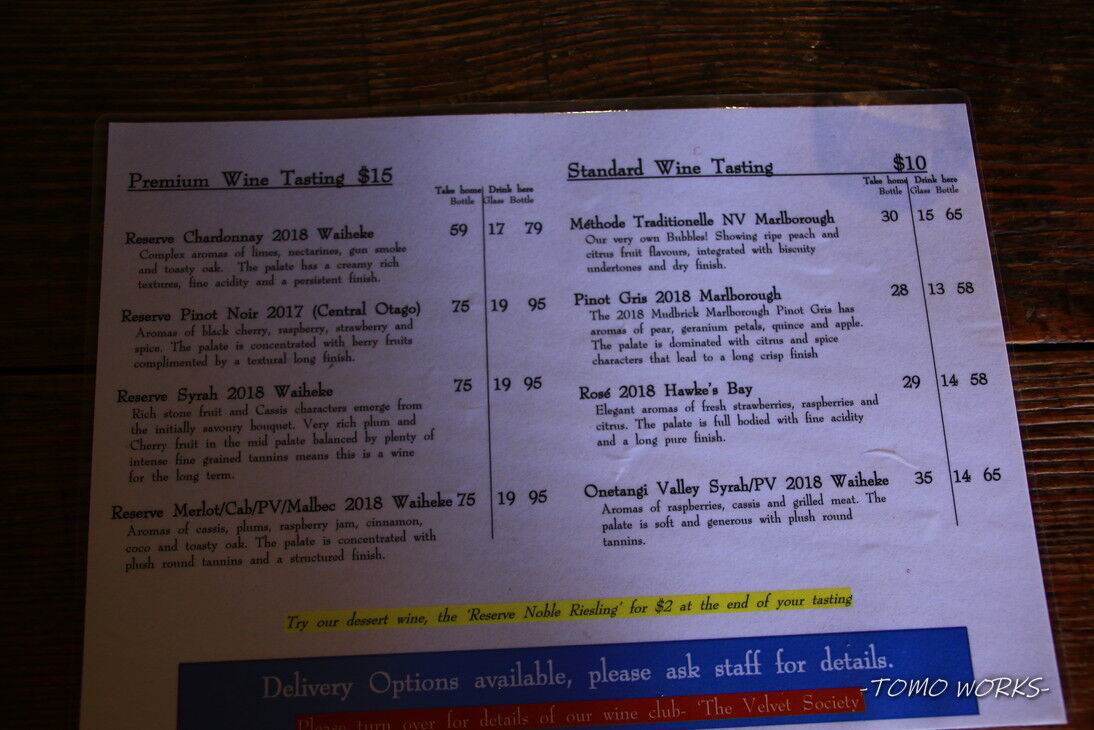 Premium Wine Tasting $15
Take home Drink here
Bottle Glass Bottle
Reserve Chardonnay 2018 Waiheke 59 17 79
Complex aromas of limes, nectarines, gun smoke
and toasty oak. The palate has a creamy rich
textures, fine acidity and a persistent finish.
Reserve Pinot Noir 2017 (Central Otago) 75 19 95
Aromas of black cherry, raspberry, strawberry and
spice. The palate is concentrated with berry fruits
complimented by a textural long finish.
Reserve Syrah 2018 Waiheke 75 19 95
Rich stone fruit and Cassis characters emerge from
the initially savoury bouquet. Very rich plum and
Cherry fruit in the mid palate balanced by plenty of
intense fine grained tannins means this is a wine
for the long term.
Reserve Merlot/Cab/PV/Malbec 2018 Waiheke 75 19 95
Aromas of cassis, plums, raspberry jam, cinnamon,
coco and toasty oak. The palate is concentrated with
plush round tannins and a structured finish.
Standard Wine Tasting $10
Take home Drink here
Bottle Glass Bottle
Méthode Traditionelle NV Marlborough 30 15 65
Our very own Bubbles! Showing ripe peach and
citrus fruit flavours, integrated with biscuity
undertones and dry finish.
Pinot Gris 2018 Marlborough 28 13 58
The 2018 Mudbrick Marlborough Pinot Gris has
aromas of pear, geranium petals, quince and apple.
The palate is dominated with citrus and spice
characters that lead to a long crisp finish
Rosé 2018 Hawke's Bay 29 14 58
Elegant aromas of fresh strawberries, raspberries and
citrus. The palate is full bodied with fine acidity
and a long pure finish.
Onetangi Valley Syrah/PV 2018 Waiheke 35 14 65
Aromas of raspberries, cassis and grilled meat. The
palate is soft and generous with plush round
tannins.
Try our dessert wine, the 'Reserve Noble Riesling' for $2 at the end of your tasting
Delivery Options available, please ask staff for details.
Please turn over for details of our wine club- 'The Velvet Society
-TOMO WORKS-